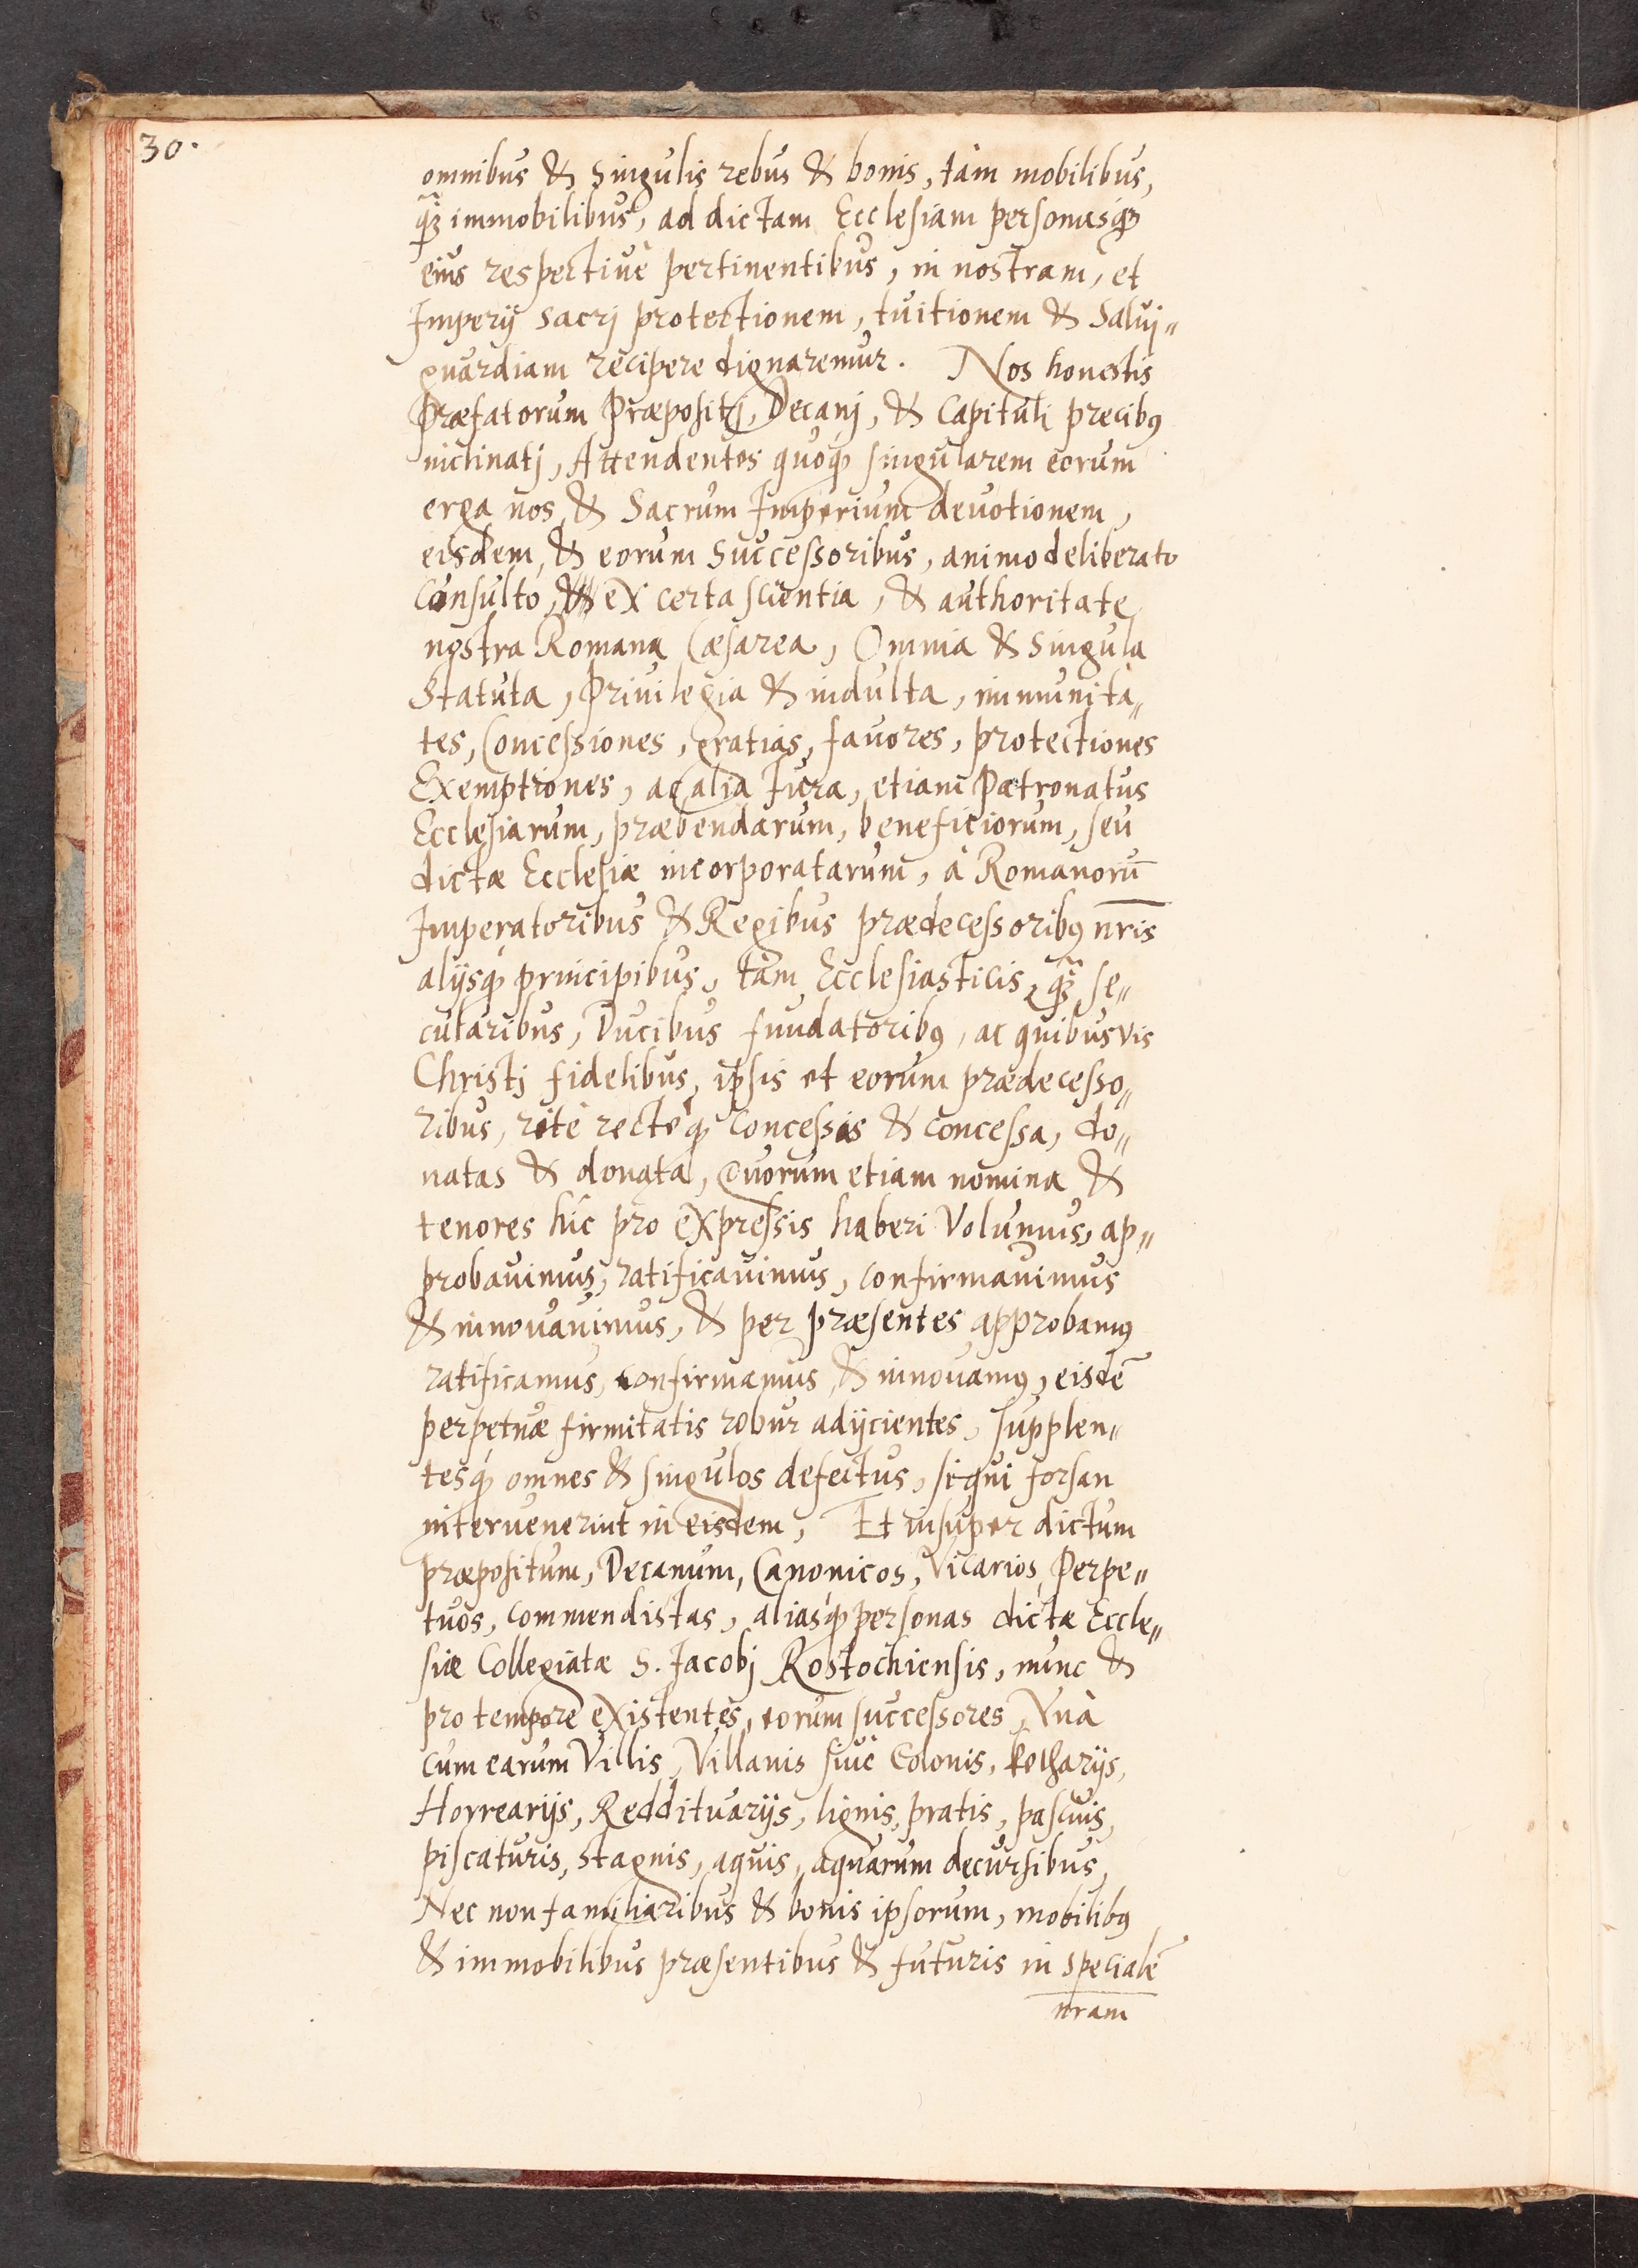 30.
omnibus & Singulis rebus & bonis, tàm mobilibus,
q̃ꝫ immobilibus, ad dictam Ecclesiam personasqꝫ
eius respectiuè pertinentibus, in nostram, et
Imperij Sacrj protectionem, tuitionem & Salui„
guardiam recipere dignaremur. Nos honestis
Præfatorum Præpositj, Decanj, & Capituli precibꝰ
inclinatj, Attendentes quoqꝫ singularem eorum
erga nos & Sacrum Imperium devotionem,
eisdem, & eorum Successoribus, animo deliberato
Consultò, ex certa scientia, & authoritate
nostra Romana Cæsarea, Omnia & Singula
Statuta, Privilegia & indulta, immunita„
tes, Concessiones, gratias, favores, protectiones
Exemptiones, ac alia Jura, etiam Patronatus
Ecclesiarum, præbendarum, beneficiorum, seu
dictæ Ecclesiæ incorporatarum, à Romanorū
Imperatoribus & Regibus prædecessoribꝰ nr̄is
alijsqꝫ principibus, tàm Ecclesiasticis, q̃ꝫ se„
cularibus, Ducibus fundatoribꝰ, ac quibusvis
Christj fidelibus, ipsis et eorum prædecesso„
ribus, ritè rectéqꝫ concessas & concessa, do„
natas & donata, Quorum etiam nomina &
tenores hîc pro expressis haberi Volumus, ap„
probavimus, ratificavimus, confirmavimus
& innovavimus, & per præsentes approbamꝰ
ratificamus, confirmamus, & innovamꝰ, eisdē
perpetuæ firmitatis robur adijcientes, supplen„
tesqꝫ omnes & singulos defectus, siqui forsan
intervenerint in eisdem, Et insuper dictum
præpositum, Decanum, Canonicos, Vicarios, Perpe„
tuos, commendistas, aliasqꝫ personas dictæ Eccle„
siæ Collegiatæ S. Jacobj Rostochiensis, nunc &
pro tempore existentes, eorum successores, Vnà
cum earum Villis, Villanis siuè Colonis, kotharijs,
Horrearijs, Reddituarijs, lignis, pratis, pascuis,
piscaturis, Stagnis, aquis, aquarum decursibus,
Nec non familiaribus & bonis ipsorum, mobilibꝰ
& immobilibus præsentibus & futuris in specialē
nr̄am